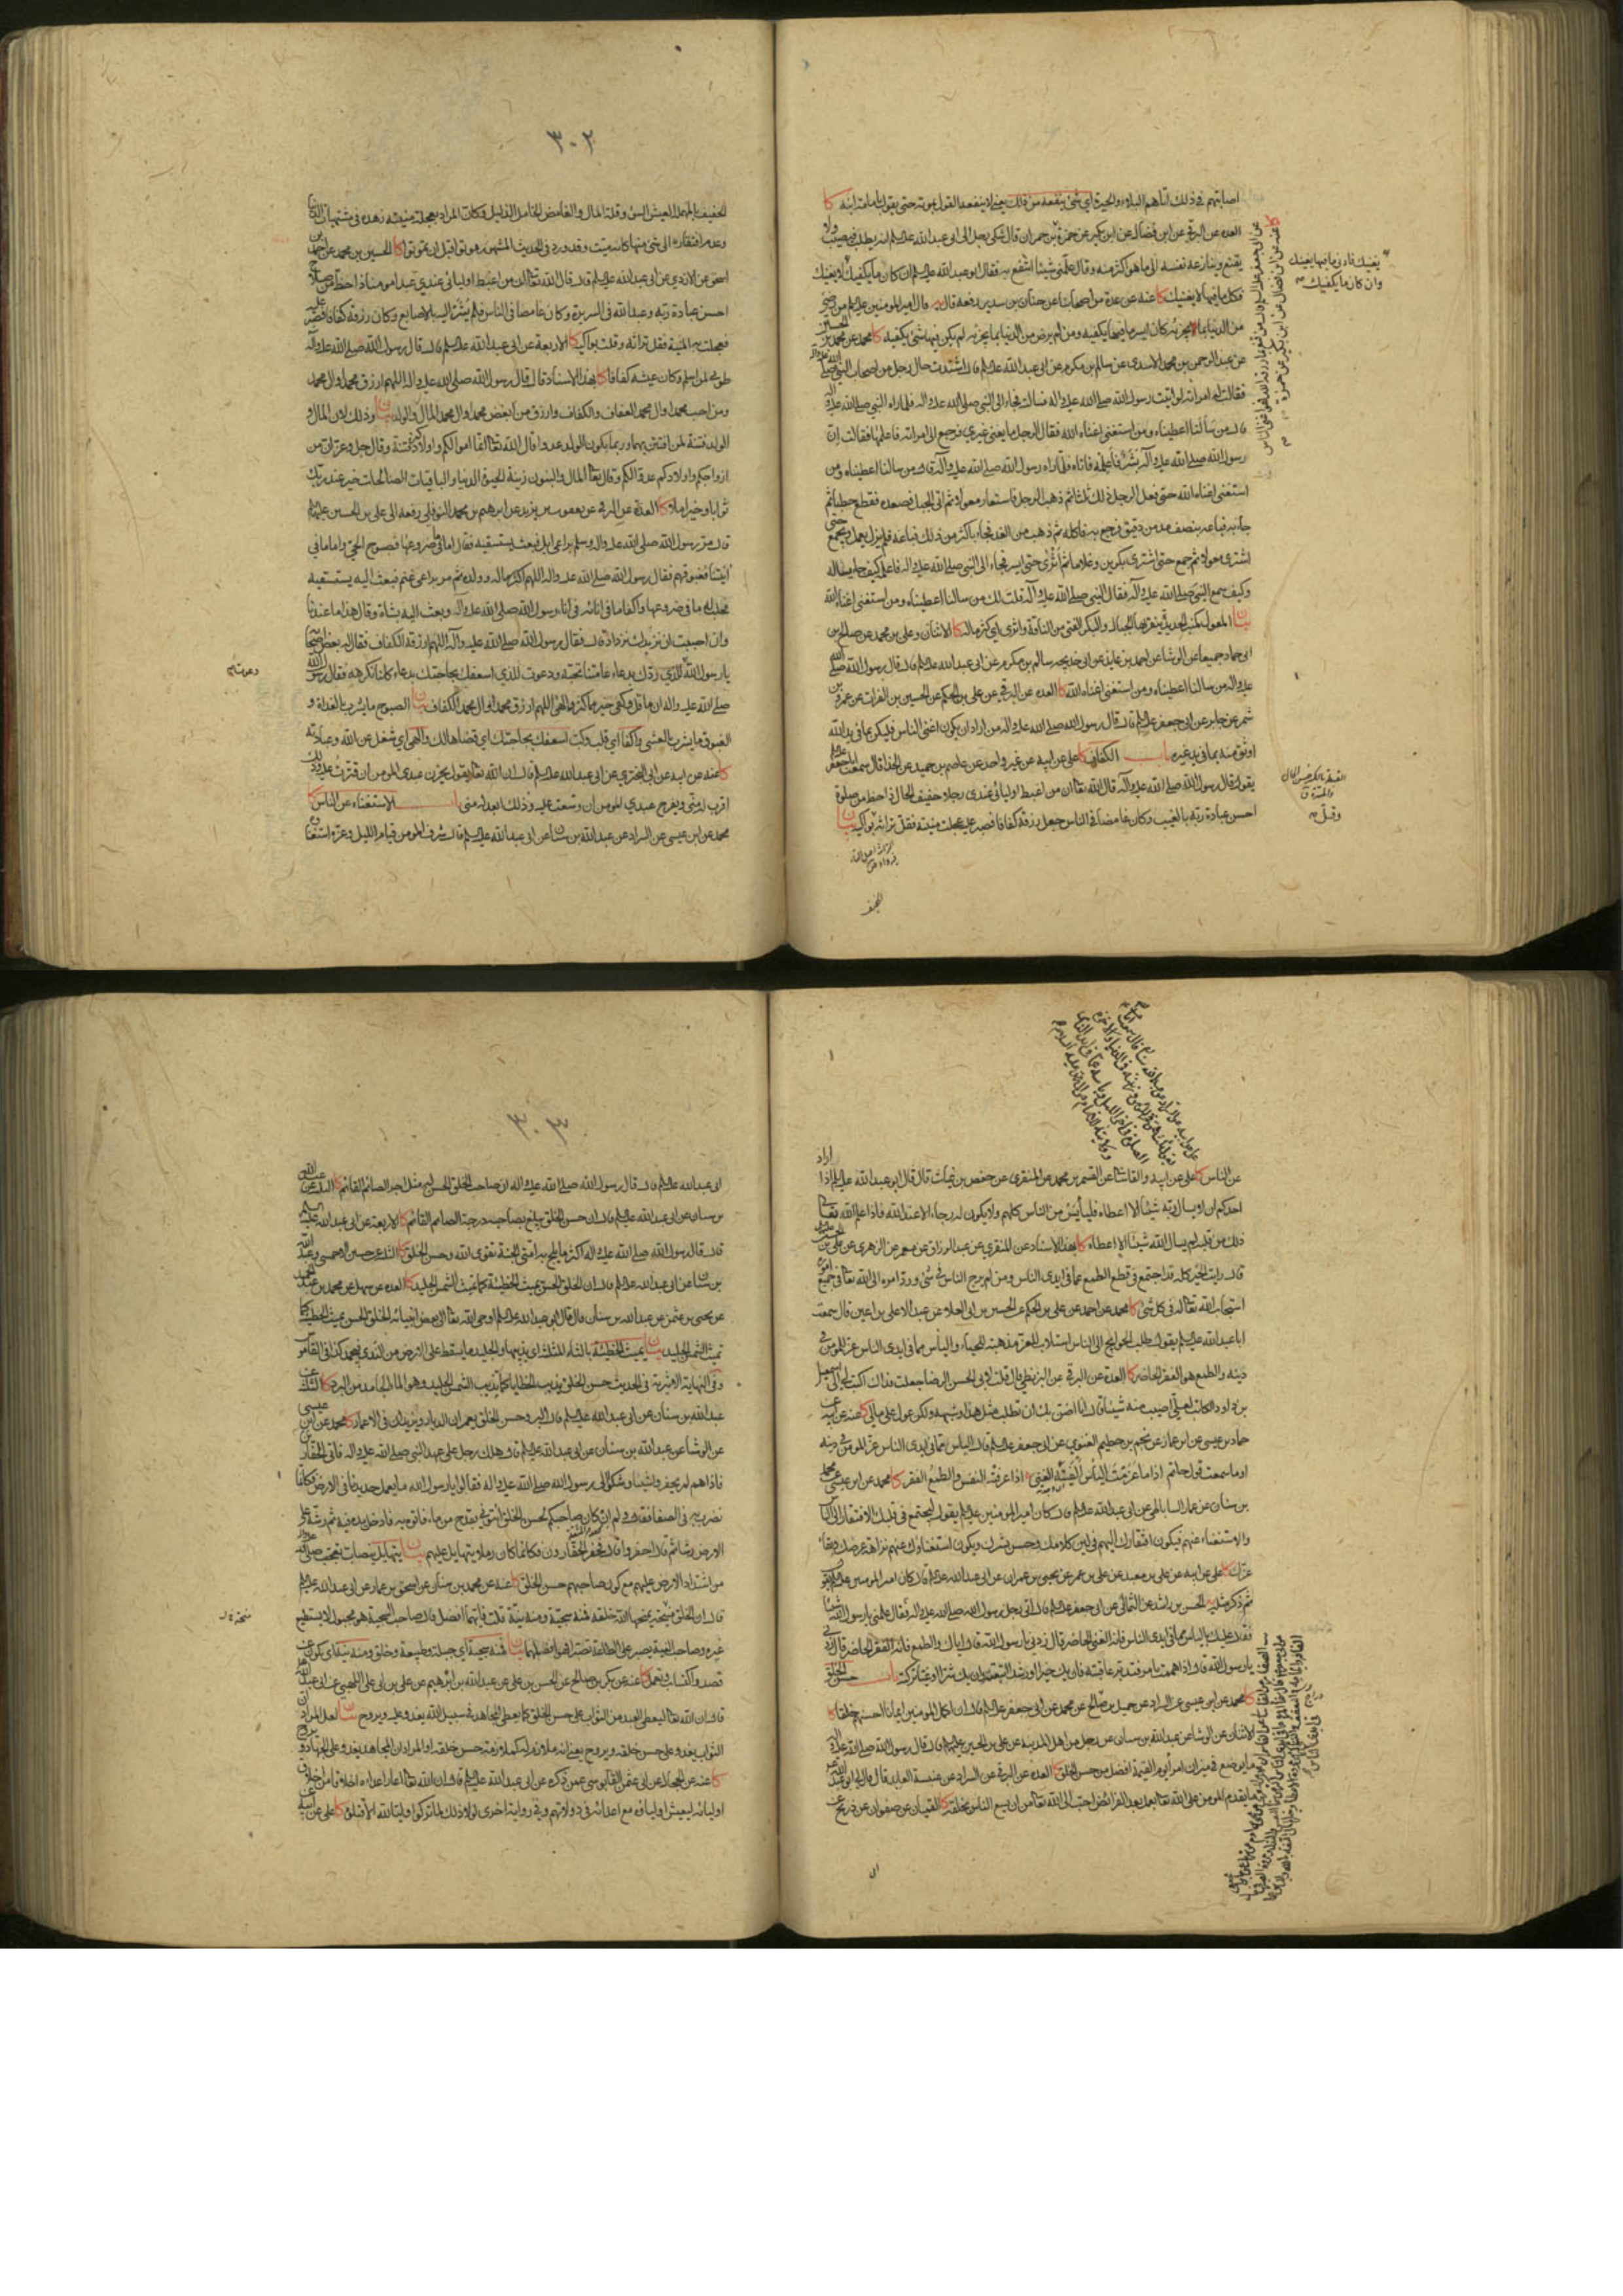 اصابتهم في ذلك انما هم البلاد والحيرة اي شئ ينفعه من ذلك يعني لا ينفعه القول بموته حتى يقول بامامة ابنه كا
العدة عن البرقي عن ابن فضال عن ابن بكير عن حمزة بن حمران قال شكى رجل الى ابي عبد الله عليه السلام انه يطلب فيصيب ولا
يقنع وينازعه نفسه الى ما هو اكثر منه وقال علمني شيئا انتفع به فقال ابو عبد الله عليه السلام ان كان ما يكفيك يغنيك
فكل ما فيها لا يغنيك كا عنه عن عدة من اصحابنا عن حنان بن سدير رفعه قال قال امير المومنين عليه السلام من رضي
من الدنيا بما يجزيه كان ايسر ما فيها يكفيه ومن لم يرض من الدنيا بما يجزيه لم يكن فيها شئ يكفيه كا محمد عن محمد بن الحسين
عن عبد الرحمن بن محمد الاسدي عن سالم بن مكرم عن ابي عبد الله عليه السلام قال اشتدت حال رجل من اصحاب النبي صلى الله عليه واله
فقالت له امراته لو اتيت رسول الله صلى الله عليه واله فسالته فجاء الى النبي صلى الله عليه واله فلما راه النبي صلى الله عليه واله
قال من سألنا اعطيناه ومن استغنى اغناه الله فقال الرجل ما يعني غيري فرجع الى امراته فاعلمها فقالت ان
رسول الله صلى الله عليه وآله بشر فاعلمه فاتاه فلما راه رسول الله صلى الله عليه وآله قال من سالنا اعطيناه ومن
استغنى اغناه الله حتى فعل الرجل ذلك ثلثا ثم ذهب الرجل فاستعار معولا ثم اتى الجبل فصعده فقطع حطبا ثم
جاء به فباعه بنصف مد من دقيق فرجع به فاكله ثم ذهب من الغد فجاء باكثر من ذلك فباعه فلم يزل يعمل ويجمع حتى
اشترى معولا ثم جمع حتى اشترى بكرين وغلاما ثم اثرى حتى ايسر فجاء الى النبي صلى الله عليه واله فاعلمه كيف جاء يساله
وكيف سمع النبي صلى الله عليه وآله فقال النبي صلى الله عليه وآله قلت لك من سالنا اعطيناه ومن استغنى اغناه الله
بيان المعول كمنبر الحديدة ينقر بها الجبال والبكر الفتى من الناقة واثرى اي كثر ماله كا الاثنان وعلي بن محمد عن صالح بن
ابي حماد جميعا عن الوشا عن احمد بن عايذ عن ابي خديجه سالم بن مكرم عن ابي عبد الله عليه السلام قال قال رسول الله صلى الله
عليه واله من سالنا اعطيناه ومن استغنى اغناه الله كا العدة عن البرقي عن علي بن الحكم عن الحسين بن الفرات عن عمرو بن
شمر عن جابر عن ابي جعفر عليه السلام قال قال رسول الله صلى الله عليه واله من اراد ان يكون اغنى الناس فليكن بما في يد الله
اوثق منه بما في يد غيره باب الكفاف كا علي عن ابيه عن غير واحد عن عاصم بن حميد عن الحذا قال سمعت ابا جعفر عليه السلام
يقول قال رسول الله صلى الله عليه وآله قال الله تعا ان من اغبط اوليائي عندي رجلا خفيف الحال ذا حظ من صلوة
احسن عبادة ربه بالغيب وكان غامضا في الناس جعل رزقه كفافا فصبر عليه عجلت منيته فقل تراثه وقلت بواكيه بيان
يغنيك فادنى ما فيها يغنيك
وان كان ما يكفيك
٣٠٢
الخفيف بالمهملة العيش السئ وقلة المال والغامض الخامل الذليل وكان المراد بعجلة منيته زهده في مشتهيات الدنيا
وعدم افتقاره الى شئ منها كانه ميت وقد ورد في الحديث المشهور موتوا قبل ان تموتوا كا الحسين بن محمد عن احمد بن
اسحق عن الازدي عن ابي عبد الله عليه السلام قال قال الله تعالى ان من اغبط اوليائي عندي عبدا مومنا ذا حظ من صلاح
احسن عبادة ربه وعبد الله في السريرة وكان غامضا في الناس فلم يشر اليه بالاصابع وكان رزقه كفافا فصبر عليه
فعجلت به المنية فقل تراثه وقلت بواكيه كا الاربعة عن ابي عبد الله عليه السلام قال قال رسول الله صلى الله عليه وآله
طوبى لمن اسلم وكان عيشه كفافا كا بهذا الاسناد قال قال رسول الله صلى الله عليه واله اللهم ارزق محمدا وال محمد
ومن احب محمدا وال محمد العفاف والكفاف وارزق من ابغض محمدا وال محمد المال والولد بيان وذلك لان المال و
الولد فتنة لمن افتتن بهما وربما يكون الولد عدوا قال الله تعا انما اموالكم واولادكم فتنة وقال جل وعز ان من
ازواجكم واولادكم عدوا لكم وقال تعا المال والبنون زينة الحيوة الدنيا والباقيات الصالحات خير عند ربك
ثوابا وخير املا كا العدة عن البرقي عن يعقوب بن يزيد عن ابرهيم بن محمد النوفلي رفعه الى علي بن الحسين عليهما السلام
قال مر رسول الله صلى الله عليه واله وسلم براعي ابل فبعث يستسقيه فقال اما ما في ضروعها فصبوح الحي واما ما في
آنيتنا فغبوقهم فقال رسول الله صلى الله عليه واله اللهم اكثر ماله وولده ثم مر براعي غنم فبعث اليه يستسقيه
فحلب له ما في ضروعها واكفا ما في انائه في اناء رسول الله صلى الله عليه واله وبعث اليه بشاة وقال هذا ما عندنا
وان احببت ان نزيدك زدناك قال فقال رسول الله صلى الله عليه وآله اللهم ارزقه الكفاف فقال له بعض اصحابه
يا رسول الله للذي ردك بدعاء عامتنا نحبه ودعوت للذي اسعفك بحاجتك بدعاء كلنا نكرهه فقال رسول الله
صلى الله عليه واله ان ما قل وكفى خير مما كثر والهى اللهم ارزق محمدا وال محمد الكفاف بيان الصبوح ما يشرب بالغداة و
الغبوق ما يشرب بالعشي واكفا اي قلب وكب اسعفك بحاجتك اي قضاها لك والهى اي شغل عن الله وعبادته
كا عنه عن ابيه عن ابي البختري عن ابي عبد الله عليه السلام قال ان الله تعا يقول يحزن عبدي المومن ان قترت عليه وذلك
اقرب له مني ويفرح عبدي المومن ان وسعت عليه وذلك ابعد له مني باب الاستغناء عن الناس كا
محمد عن ابن عيسى عن السراد عن عبد الله بن سنان عن ابي عبد الله عليه السلام قال شرف المومن قيام الليل وعزه استغناؤه
عن الناس كا علي عن ابيه والقاساني عن القسم بن محمد عن المنقري عن حفص بن غياث قال قال ابو عبد الله عليه السلام اذا اراد
احدكم ان لا يسال ربه شيئا الا اعطاه فلييأس من الناس كلهم ولا يكون له رجاء الا عند الله فاذا علم الله تعا
ذلك من قلبه لم يسال الله شيئا الا اعطاه كا بهذا الاسناد عن المنقري عن عبد الرزاق عن معمر عن الزهري عن علي بن الحسين
قال رايت الخير كله قد اجتمع في قطع الطمع عما في ايدي الناس ومن لم يرج الناس في شئ ورد امره الى الله تعا في جميع اموره
استجاب الله تعالى له في كل شئ كا محمد عن احمد عن علي بن الحكم عن الحسين بن ابي العلاء عن عبد الاعلى بن اعين قال سمعت
ابا عبد الله عليه السلام يقول طلب الحوائج الى الناس استلاب للعز مذهبة للحياء واليأس مما في ايدي الناس عز للمومن في
دينه والطمع هو الفقر الحاضر كا العدة عن البرقي عن البزنطي قال قلت لابي الحسن الرضا جعلت فداك اكتب لي الى اسمعيل
بن داود الكاتب لعلي اصيب منه شيئا قال انا اضن بك ان تطلب مثل هذا وشبهه ولكن عول على مالي كا عنه عن ابيه عن
حماد بن عيسى عن ابن عمار عن نجم بن حطيم الغنوي عن ابي جعفر عليه السلام قال الياس مما في ايدي الناس عز المومن في دينه
اوما سمعت قول حاتم اذا ما عزمت الياس الفيته الغنى اذا عرفته النفس والطمع الفقر كا محمد عن ابن عيسى عن محمد
بن سنان عن عمار الساباطي عن ابي عبد الله عليه السلام قال كان امير المومنين عليه السلام يقول ليجتمع في قلبك الافتقار الى الناس
والاستغناء عنهم فيكون افتقارك اليهم في لين كلامك وحسن بشرك ويكون استغناؤك عنهم نزاهة عرضك وبقاء
عزك كا علي عن ابيه عن علي بن معبد عن علي بن عمر عن يحيى بن عمران عن ابي عبد الله عليه السلام قال كان امير المومنين عليه السلام يقول
ثم ذكر مثله الحسن بن راشد عن الثمالي عن ابي جعفر عليه السلام قال اتى رجل رسول الله صلى الله عليه واله فقال علمني يا رسول الله شيئا
فقال عليك بالياس مما في ايدي الناس فانه الغنى الحاضر قال زدني يا رسول الله قال اياك والطمع فانه الفقر الحاضر قال زدني
يا رسول الله قال اذا هممت بامر فتدبر عاقبته فان يك خيرا او رشدا اتبعته وان يك شرا او غيا تركته باب حسن الخلق
كا محمد عن ابن عيسى عن السراد عن جميل بن صالح عن محمد عن ابي جعفر عليه السلام قال ان اكمل المومنين ايمانا احسنهم خلقا كا
الاثنان عن الوشا عن عبد الله بن سنان عن رجل من اهل المدينة عن علي بن الحسين عليهما السلام قال قال رسول الله صلى الله عليه واله
ما يوضع في ميزان امرئ يوم القيمة افضل من حسن الخلق كا العدة عن البرقي عن السراد عن عنبسة العابد قال قال لي ابو عبد الله
ما يقدم المومن على الله تعا بعمل بعد الفرائض احب الى الله تعا من ان يسع الناس بخلقه كا القميان عن صفوان عن ذريح عن
٣٠٣
ابي عبد الله عليه السلام قال قال رسول الله صلى الله عليه واله ان صاحب الخلق الحسن له مثل اجر الصائم القائم كا الثلثة عن عبد الله
بن سنان عن ابي عبد الله عليه السلام قال ان حسن الخلق يبلغ بصاحبه درجة الصائم القائم كا الاربعة عن ابي عبد الله عليه السلام
قال قال رسول الله صلى الله عليه واله اكثر ما يلج به امتي الجنة تقوى الله وحسن الخلق كا الثلثة عن حسين الاحمسي وعبد الله
بن سنان عن ابي عبد الله عليه السلام قال ان الخلق الحسن يميث الخطيئة كما تميث الشمس الجليد كا العدة عن سهل عن محمد بن عبد الحميد
عن يحيى بن عمرو عن عبد الله بن سنان قال قال ابو عبد الله عليه السلام اوحى الله تعا الى بعض انبيائه الخلق الحسن يميث الخطيئة كما
تميث الشمس الجليد بيان يميث الخطيئة بالثاء المثلثة اي يذيبها والجليد ما يسقط على الارض من الندى فيجمد كذا في القاموس
وفي النهاية الاثيرية في الحديث حسن الخلق يذيب الخطايا كما تذيب الشمس الجليد وهو الماء الجامد من البرد كا الثلثة عن
عبد الله بن سنان عن ابي عبد الله عليه السلام قال البر وحسن الخلق يعمران الديار ويزيدان في الاعمار كا محمد عن ابن عيسى
عن الوشا عن عبد الله بن سنان عن ابي عبد الله عليه السلام قال هلك رجل على عهد النبي صلى الله عليه واله فاتى الحفارين
فاذا هم لم يحفروا شيئا وشكوا الى رسول الله صلى الله عليه واله فقالوا يا رسول الله ما يعمل حديدنا في الارض فكانما
نضرب به في الصفا فقال ولم ان كان صاحبكم لحسن الخلق ائتوني بقدح من ماء فاتوه به فادخل يده فيه ثم رشه على
الارض رشا ثم قال احفروا قال فحفر الحفارون فكانما كان رملا يتهايل عليهم بيان يتهايل ينصاب تعجب صلى الله عليه واله
من اشتداد الارض عليهم مع كون صاحبهم حسن الخلق كا عنه عن محمد بن سنان عن اسحق بن عمار عن ابي عبد الله عليه السلام
قال ان الخلق منيحة يمنحها الله خلقه فمنه سجية ومنه نية قلت فايتهما افضل قال صاحب السجية هو مجبول لا يستطيع
غيره وصاحب النية يصبر على الطاعة تصبرا فهو افضلهما بيان فمنه سجية اي جبلة وطبيعة وخلق ومنه نية اي يكون عن
قصد واكتساب وتعمد كا عنه عن بكر بن صالح عن الحسن بن علي عن عبد الله بن ابرهيم عن علي بن ابي علي اللهبي عن ابي عبد الله
قال ان الله تعا ليعطي العبد من الثواب على حسن الخلق كما يعطي المجاهد في سبيل الله يغدو عليه ويروح بيان لعل المراد
الثواب يغدو على حسن خلقه ويروح يعني انه ملازم له كملازمته حسن خلقه او المراد ان المجاهد يغدو على الجهاد ويروح
كا عنه عن الحجال عن ابي عثمن القابوسي عمن ذكره عن ابي عبد الله عليه السلام قال ان الله تعا اعار اعداءه اخلاقا من اخلاق
اوليائه ليعيش اولياؤه مع اعدائه في دولاتهم وفي رواية اخرى لولا ذلك لما تركوا وليا لله الا قتلوه كا علي عن ابيه